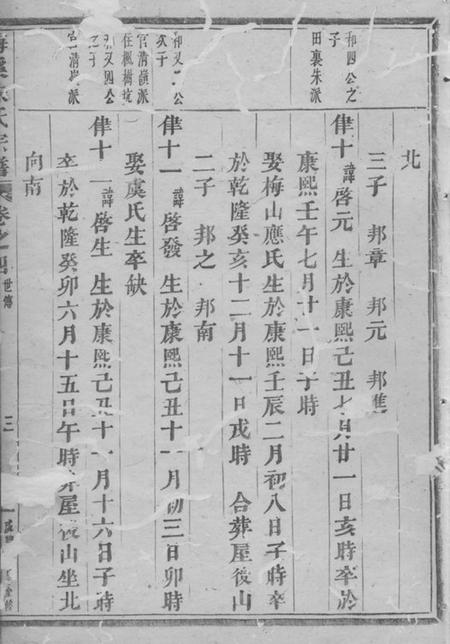 北
三子 邦章 邦元 邦進
和四公之
子
田裏朱派
侓十 諱啓元 生於康熙己丑七月廿一日亥時卒於
康熙壬午七月十一日子時
娶梅山應氏生於康熙壬辰二月初八日子時卒
於乾隆癸亥十二月十一日戌時 合葬屋後山
二子 邦之 邦南
公
次子
官清嶺派
住楓樹坑
侓十一 諱啓發 生於康熙己丑十一月初三日卯時
娶虞氏生卒缺
又四公
之子
清嶺派
侓十 諱啓生 生於康熙己丑十一月十六日子時
卒於乾隆癸卯六月十五日午時葬屋後山坐北
向南
氏宗譜 卷之四 世傳 三